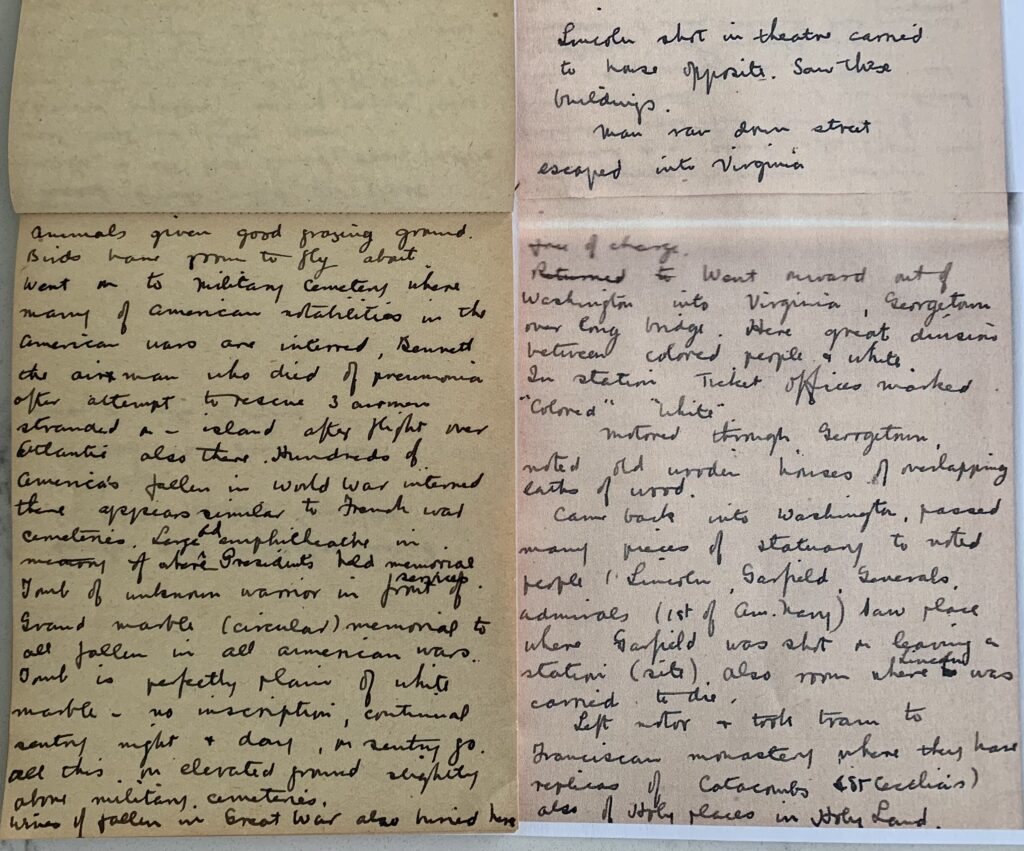 Animals given good grazing ground.
Birds have room to fly about.
Went on to Military Cemetery where
many of American notabilities in the
American wars are interred, Bennett
the airman who died of pneumonia
after attempt to rescue 3 airmen
stranded on – island after flight over
Atlantic also there. Hundreds of
America's fallen in World War interred
there appears similar to French war
cemeteries. Large amphitheatre in
memory of where Presidents held memorial
services
Tomb of unknown warrior in front of
Grand marble (circular) memorial to
all fallen in all American wars.
Tomb is perfectly plain of white
marble – no inscription, continual
sentry night & day, on sentry go.
all this on elevated ground slightly
above military cemeteries.
Wives of fallen in Great War also buried here
Lincoln shot in theatre carried
to house opposite. Saw these
buildings.
Man ran down street
escaped into Virginia
free of charge.
Returned to Went onward out of
Washington into Virginia, Georgetown
over long bridge. Here great division
between colored people & white
In station Ticket offices marked
"Colored" "White"
Motored through Georgetown,
noted old wooden houses of overlapping
laths of wood.
Came back into Washington, passed
many pieces of statuary to noted
people, Lincoln, Garfield, Generals,
admirals (1st of Am. Navy) Saw place
where Garfield was shot on leaving a
station (site), also room where Lincoln was
carried to die.
Left motor & took tram to
Franciscan monastery where they have
replicas of Catacombs (St Cecilia's)
also of Holy places in Holy Land.